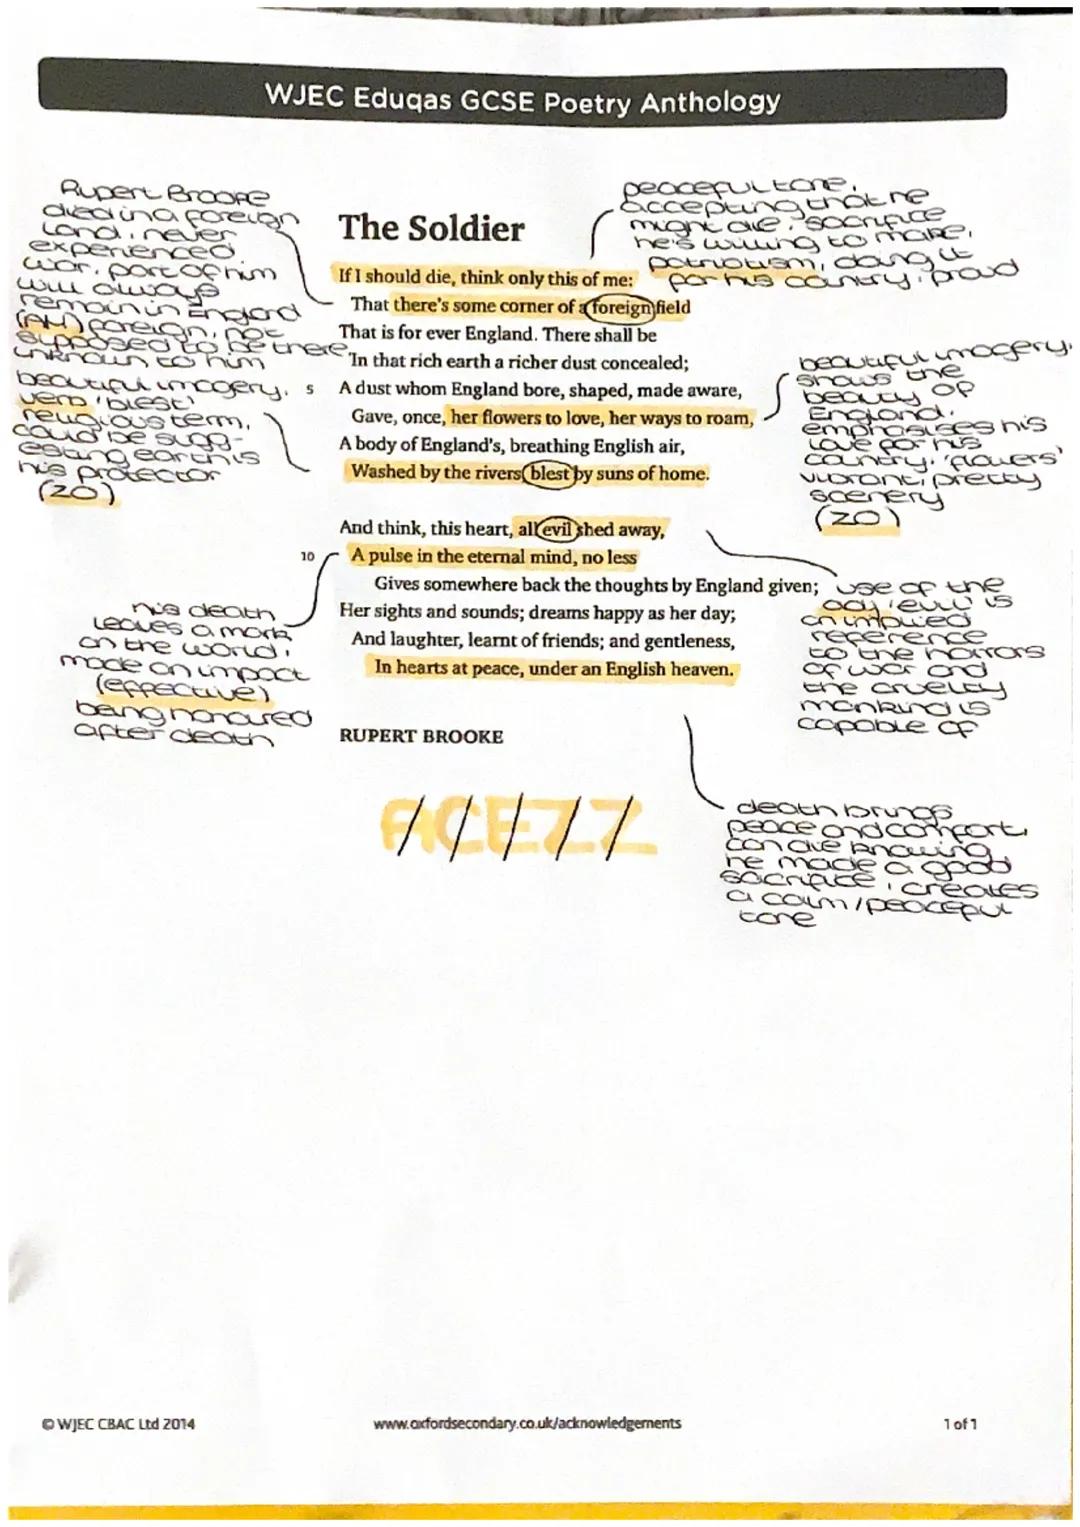 WJEC Eduqas GCSE Poetry Anthology
Rupert Brooke
died in a foreign
land, never
experienced
war, part of him
will always
remain in England
(AH) foreign, not
supposed to be there
unknown to him
beautiful imagery,
verb 'blest'
religious term,
could be sugg-
esting earth is
his protector
(ZO)
peaceful tone,
accepting that he
might die, sacrifice
he's willing to make,
patriotism, doing it
for his country, proud
The Soldier
If I should die, think only this of me:
That there's some corner of a foreign field
That is for ever England. There shall be
In that rich earth a richer dust concealed;
5 A dust whom England bore, shaped, made aware,
Gave, once, her flowers to love, her ways to roam,
A body of England's, breathing English air,
Washed by the rivers, blest by suns of home.
beautiful imagery,
shows the
beauty of
England.
emphasises his
love for his
country, 'flowers'
vibrant, pretty
scenery
(ZO)
And think, this heart, all evil shed away,
10 A pulse in the eternal mind, no less
Gives somewhere back the thoughts by England given;
Her sights and sounds; dreams happy as her day;
And laughter, learnt of friends; and gentleness,
In hearts at peace, under an English heaven.
his death
leaves a mark
on the world,
made an impact
(effective)
being honoured
after death
use of the
adj 'evil' is
an implied
reference
to the horrors
of war and
the cruelty
mankind is
capable of
RUPERT BROOKE
ACEZZ
death brings
peace and comfort,
can die knowing
he made a good
sacrifice, creates
a calm/peaceful
tone
© WJEC CBAC Ltd 2014
www.oxfordsecondary.co.uk/acknowledgements
1 of 1